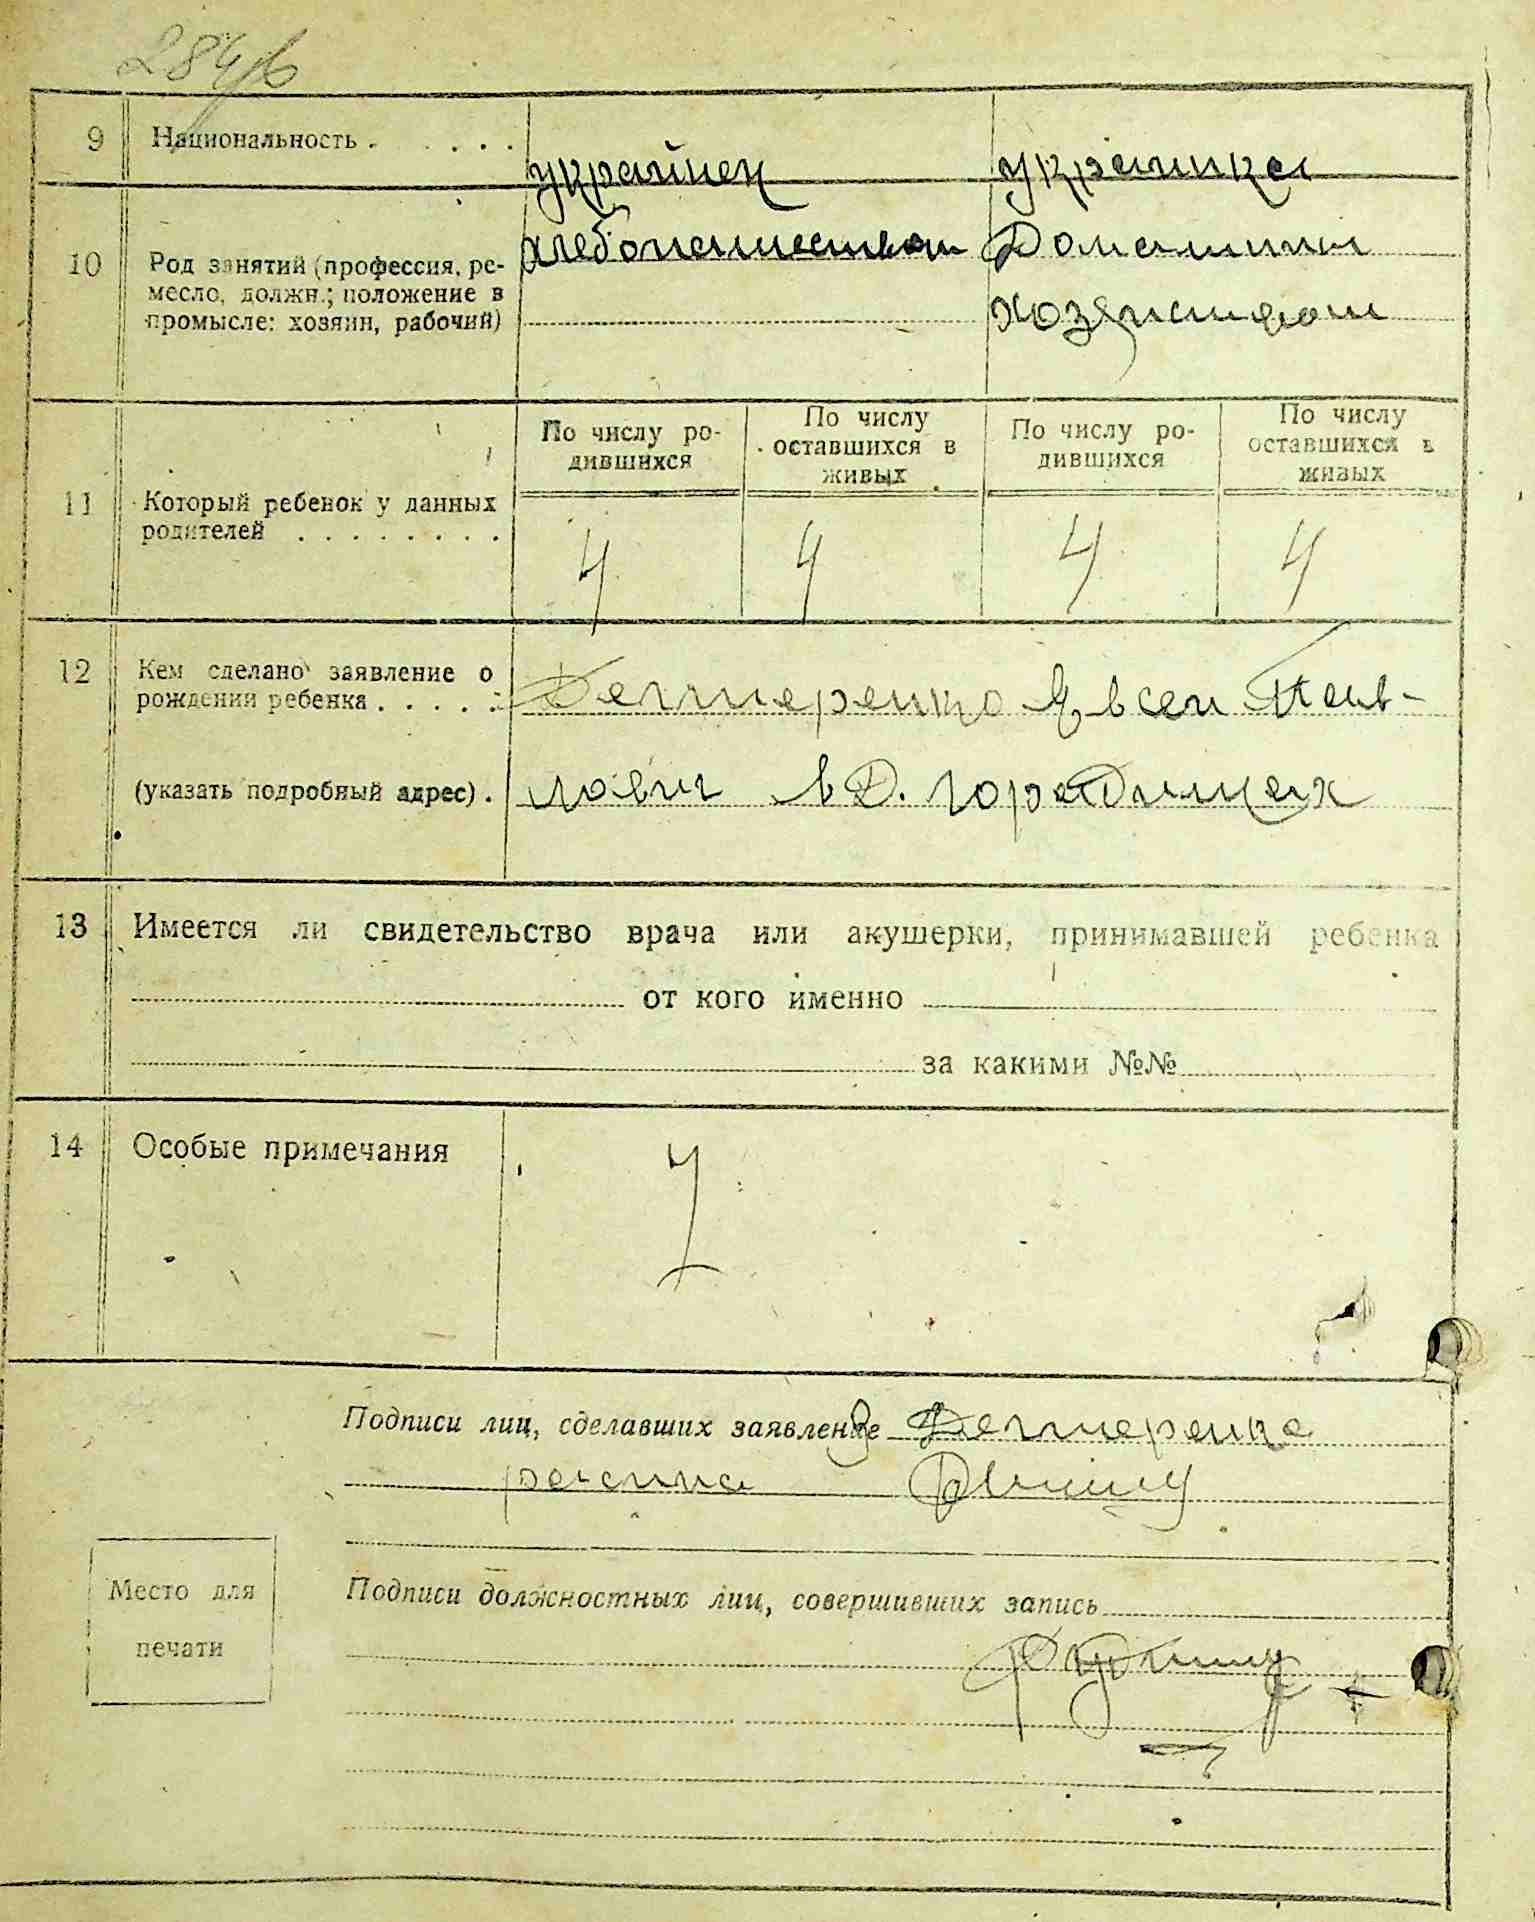 284/в
9 Национальность . . . . . украинец украинка
10 Род занятий (профессия, ре-
месло, должн.; положение в
промысле: хозяин, рабочий)
хлебопашеством Домашним
хозяиством
11 Который ребенок у данных
родителей . . . . . . . .
По числу ро-
дившихся
По числу
оставшихся в
живых
По числу ро-
дившихся
По числу
оставшихся в
живых
4 4 4 4
12 Кем сделано заявление о
рождении ребенка . . . . .
(указать подробный адрес) .
Дегтеренко Явсей Пав-
лович в Д. Городищах
13 Имеется ли свидетельство врача или акушерки, принимавшей ребенка
от кого именно
за какими №№
14 Особые примечания
Подписи лиц, сделавших заявление Дегтеренко
Место для
печати
Подписи должностных лиц, совершивших запись